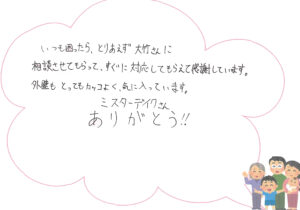 いつも困ったら、とりあえず 大竹さんに
相談させてもらって、すぐに対応してもらえて感謝しています。
外壁も とってもカッコよく、気に入っています。
ミスターデイクさん、
ありがとう!!